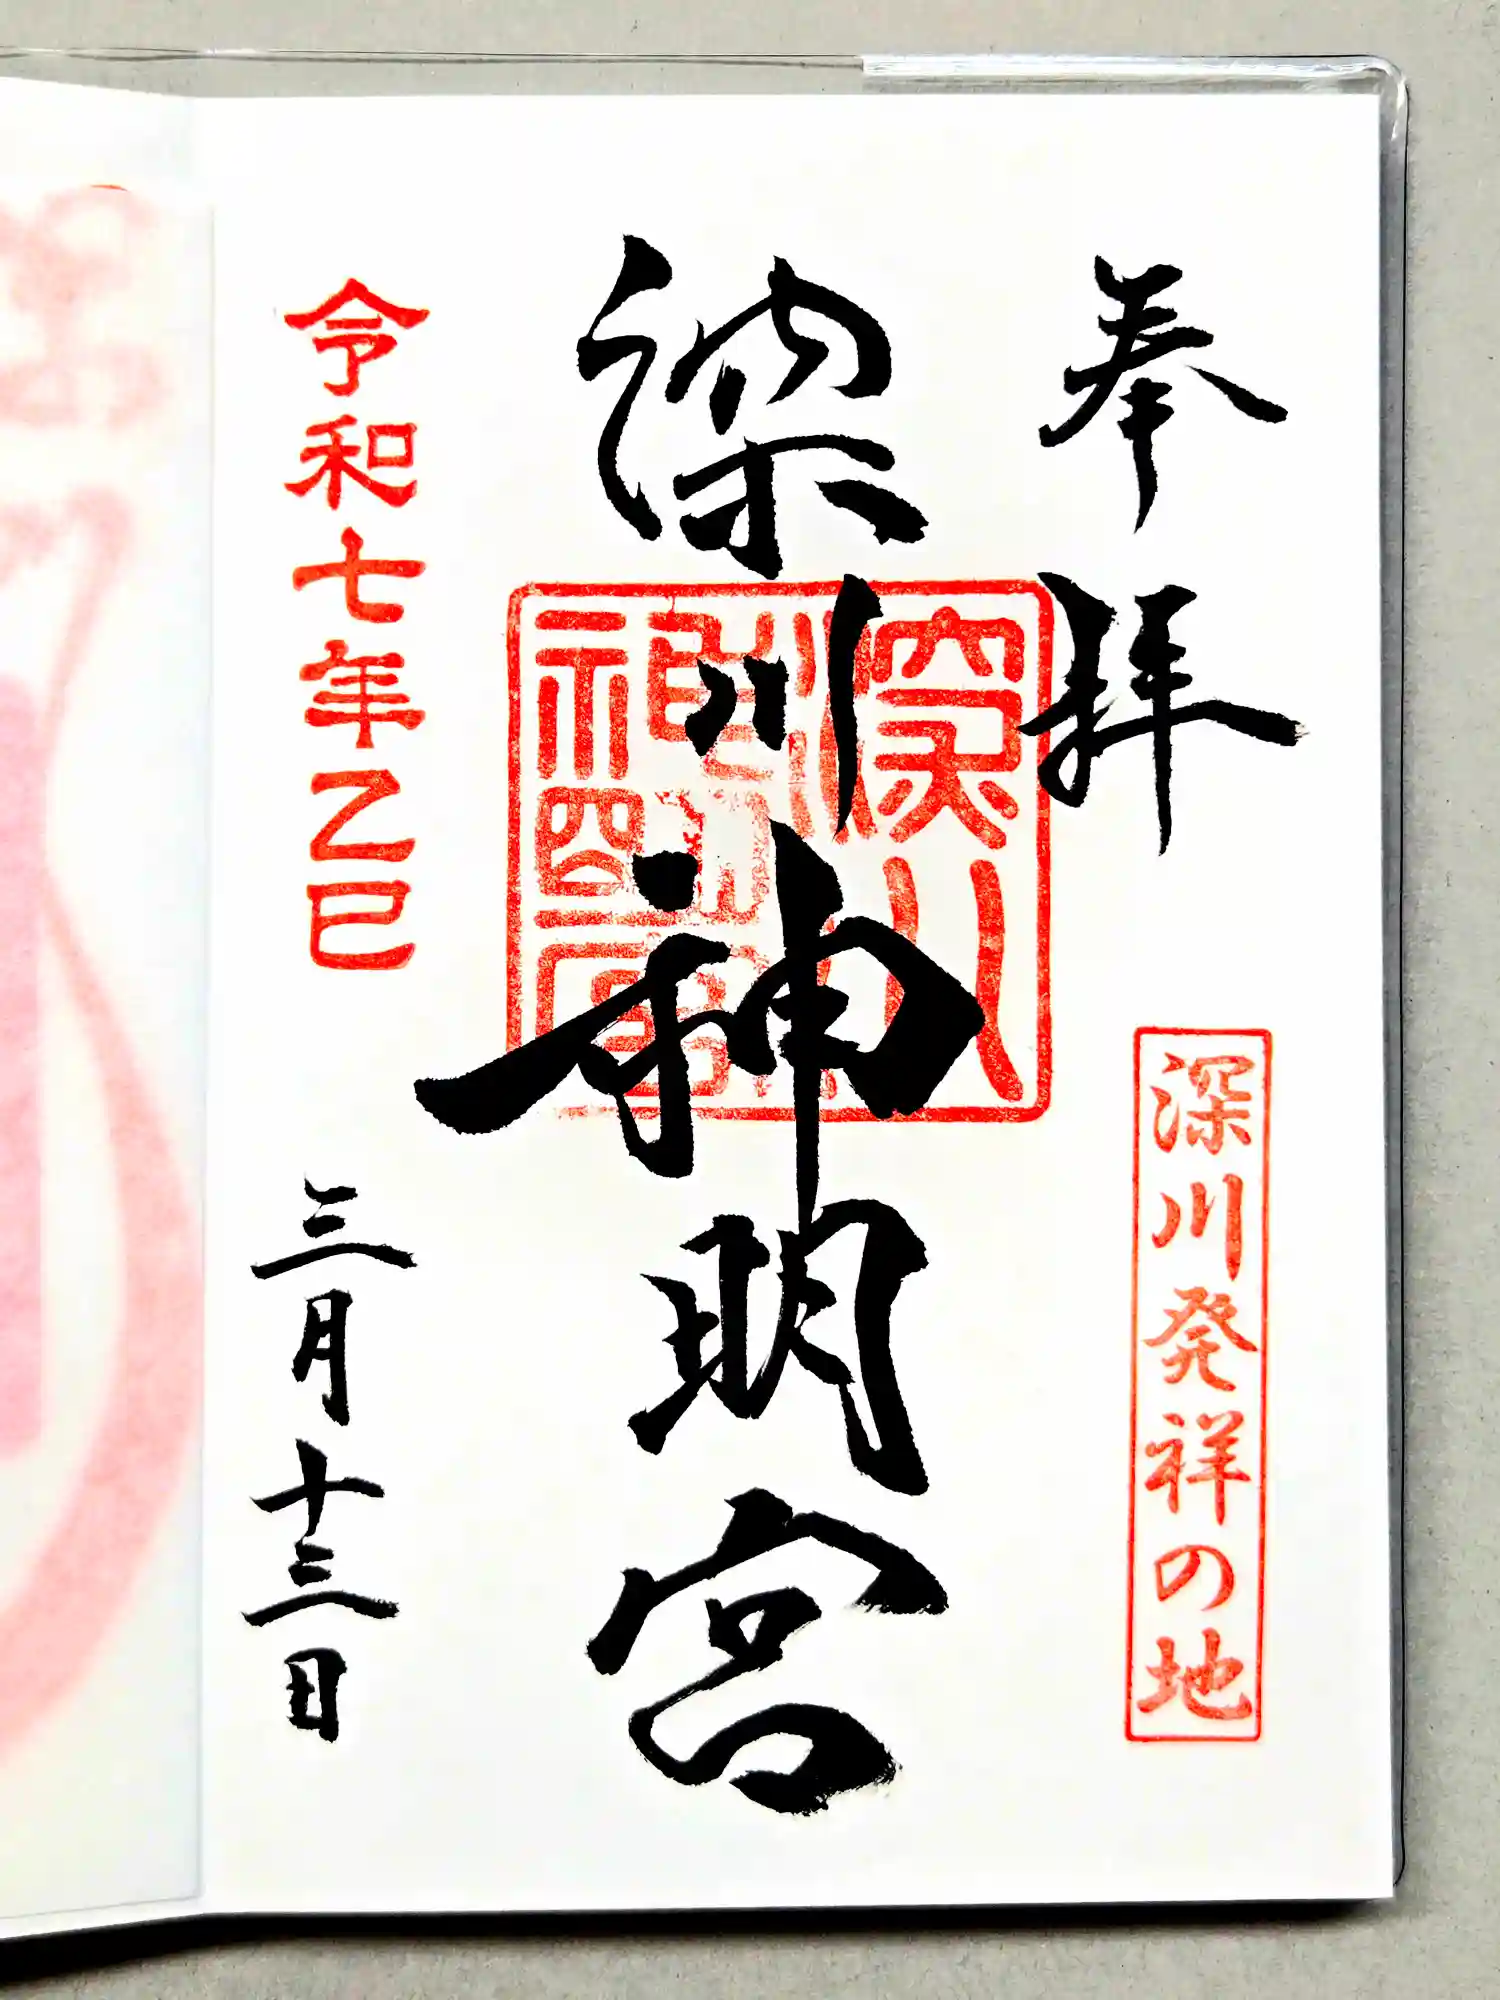 奉拝
深川発祥の地
深川神明宮
令和七年乙巳
三月十三日